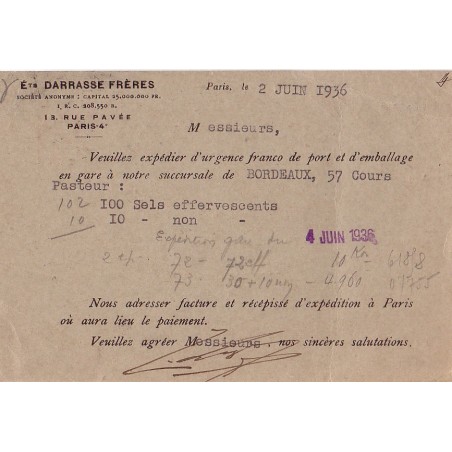 Éts DARRASSE FRÈRES
SOCIÉTÉ ANONYME : CAPITAL 25.000.000 FR.
R. C. 208.550 B.
13, RUE PAVÉE
PARIS-4e
Paris, le 2 JUIN 1936
Messieurs,
Veuillez expédier d'urgence franco de port et d'emballage
en gare à notre succursale de BORDEAUX, 57 Cours
Pasteur :
102 100 Sels effervescents
10 10 - non -
Expédition gare du 4 JUIN 1936
72 - 72 eff 10 K
73 - 30+10 4.960
Nous adresser facture et récépissé d'expédition à Paris
où aura lieu le paiement.
Veuillez agréer Messieurs, nos sincères salutations.